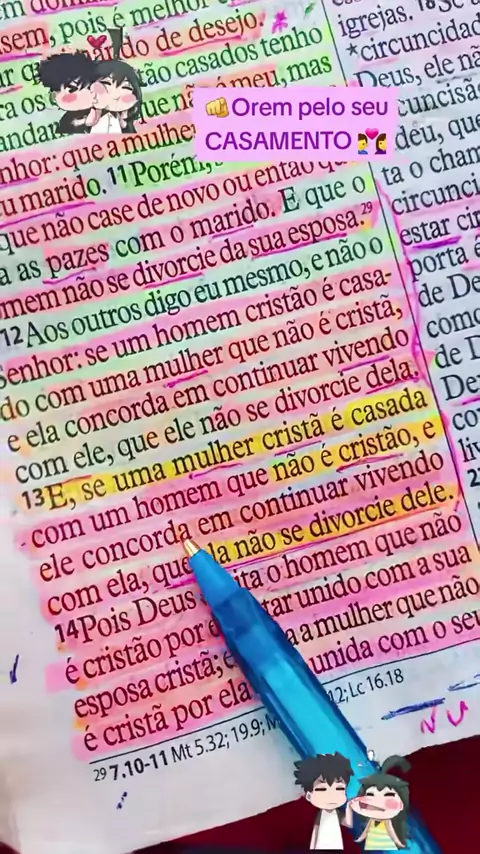 sem, pois é melhor
do de desejo.
tão casados tenho
ra os que não é meu, mas
andar
nhor: que a mulher
u marido. 11 Porém,
que não case de novo ou então que
a as pazes com o marido. E que o
mem não se divorcie da sua esposa.29
12 Aos outros digo eu mesmo, e não o
Senhor: se um homem cristão é casa-
do com uma mulher que não é cristã,
e ela concorda em continuar vivendo
com ele, que ele não se divorcie dela.
13 E, se uma mulher cristã é casada
com um homem que não é cristão, e
ele concorda em continuar vivendo
com ela, que ela não se divorcie dele.
14 Pois Deus ita o homem que não
é cristão por estar unido com a sua
esposa cristã; e a a mulher que não
é cristã por ela unida com o seu
29 7.10-11 Mt 5.32; 19.9; M 12; Lc 16.18
igrejas. 18 Se
*circuncidad
Deus, ele nã
cuncisã
deu, que
ta o cham
circunci
estar cir
porta é
de De
como
de D
Deu
co
liv
🫵Orem pelo seu
CASAMENTO 💑